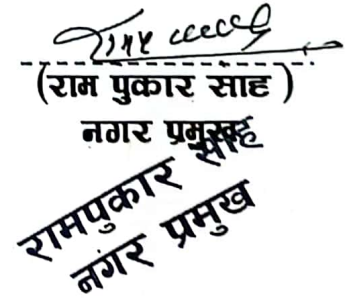 (राम पुकार साह )
नगर प्रमुख
रामपुकार साह
नगर प्रमुख